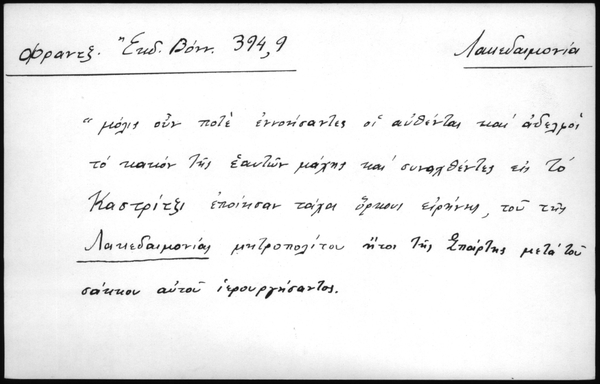 Φραντζ. Ἔκδ. Βόνν. 394,9
Λακεδαιμονία
"μόλις οὖν ποτὲ ἐννοήσαντες οἱ αὐθένται καὶ ἀδελφοὶ
τὸ κακὸν τῆς ἑαυτῶν μάχης καὶ συναχθέντες εἰς τὸ
Καστρίτζι ἐποίησαν τάχα ὅρκους εἰρήνης, τοῦ τῆς
Λακεδαιμονίας μητροπολίτου ἤτοι τῆς Σπάρτης μετὰ τοῦ
σάκκου αὐτοῦ ἱερουργήσαντος.